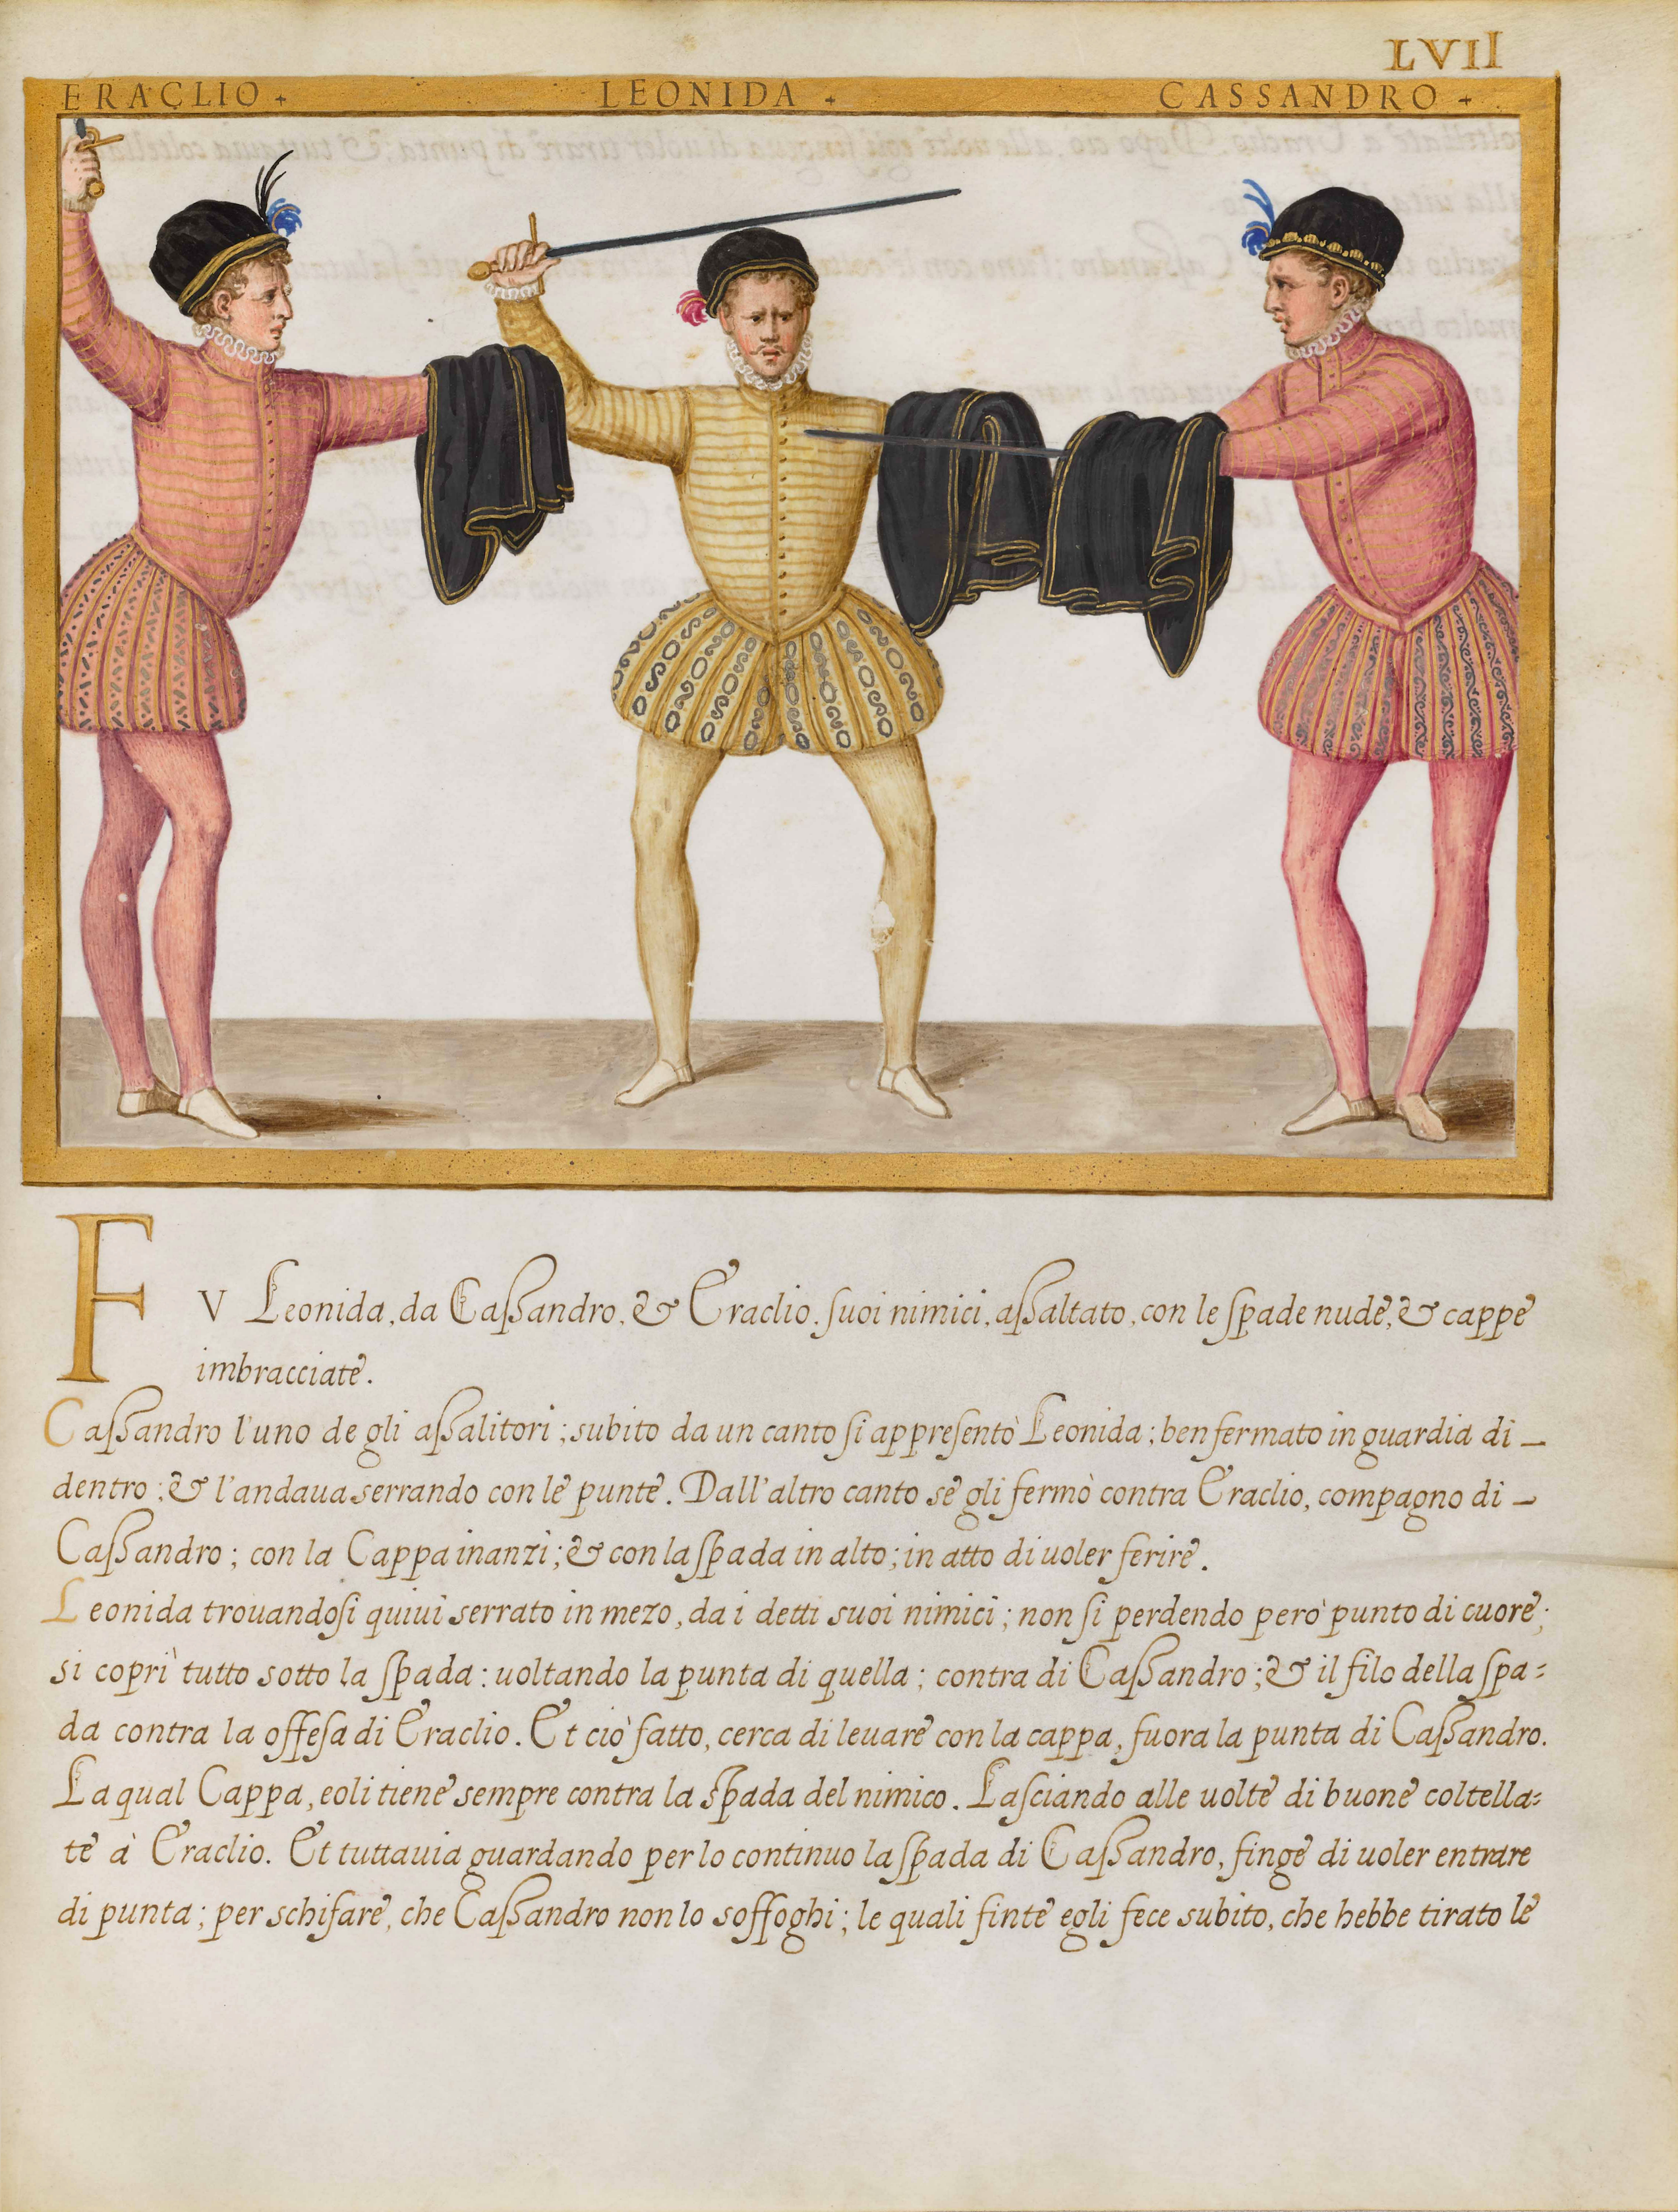 LVII
ERACLIO + LEONIDA + CASSANDRO +
FV Leonida, da Caſſandro, & Eraclio, ſuoi nimici, aſſaltato, con le ſpade nude, & cappe
imbracciate.
Caſſandro l'uno de gli aſſalitori; subito da un canto ſi appreſentò Leonida; ben fermato in guardia di
dentro; & l'andaua serrando con le punte. Dall'altro canto se gli fermò contra Eraclio, compagno di
Caſſandro; con la Cappa inanzi; & con la ſpada in alto; in atto di uoler ferire.
Leonida trouandoſi quiui serrato in mezo, da i detti suoi nimici; non ſi perdendo però punto di cuore;
si coprì tutto sotto la ſpada: uoltando la punta di quella; contra di Caſſandro; & il filo della ſpa=
da contra la offeſa di Eraclio. Et ciò fatto, cerca di leuare con la cappa, fuora la punta di Caſſandro.
La qual Cappa, egli tiene sempre contra la ſpada del nimico. Laſciando alle uolte di buone coltella=
te à Eraclio. Et tuttauia guardando per lo continuo la ſpada di Caſſandro, finge di uoler entrare
di punta; per schifare, che Caſſandro non lo soffoghi; le quali finte egli fece subito, che hebbe tirato le